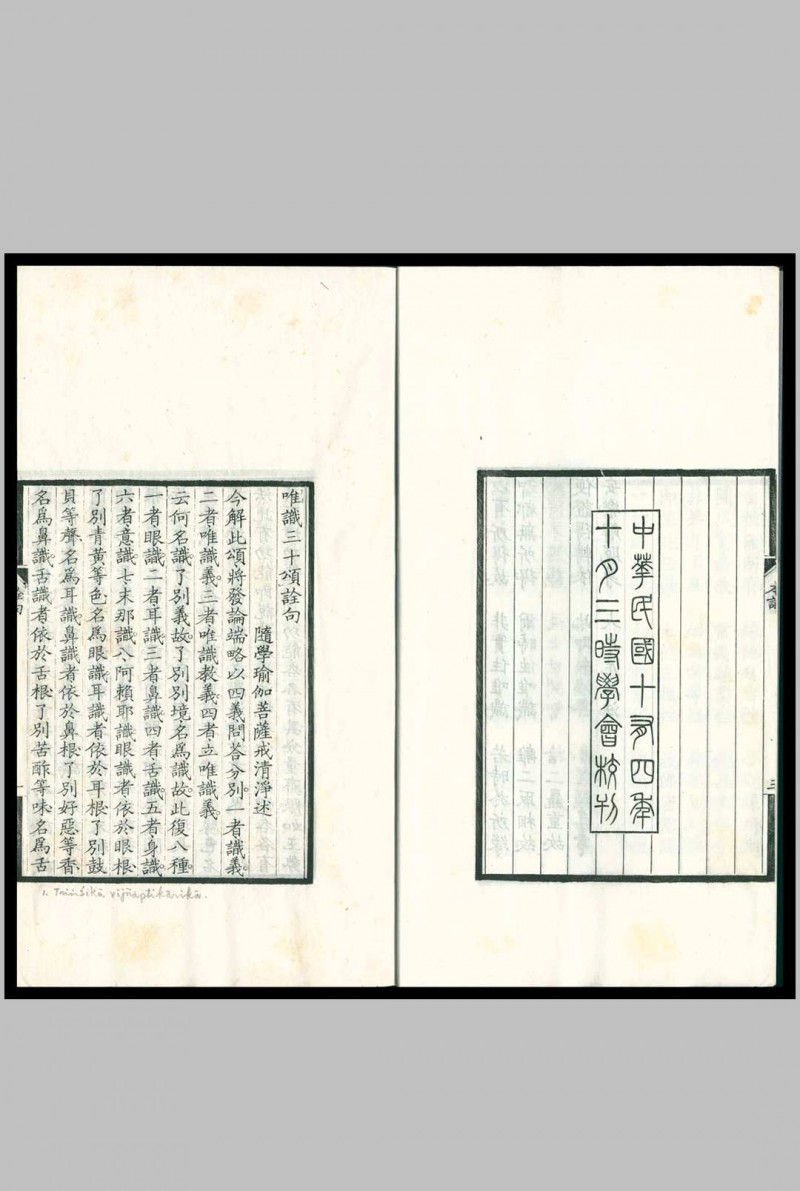 中華民國十有四年
十月三時學會校刊
唯識三十頌詮句
隨學瑜伽菩薩戒清淨述
今解此頌將發論端略以四義問荅分別。一者識義。
二者唯識義。三者唯識教義。四者立唯識義。
云何名識。了別義故。了別別境名為識故。此復八種。
一者眼識二者耳識三者鼻識四者舌識五者身識
六者意識七末那識八阿賴耶識。眼識者依於眼根
了別青黃等色名為眼識。耳識者依於耳根了別鼓
貝等聲。名為耳識。鼻識者依於鼻根了別好惡等香。
名為鼻識。舌識者依於舌根。了別苦酢等味。名為舌
一
1. Triṁśikā vijñaptikārikā.